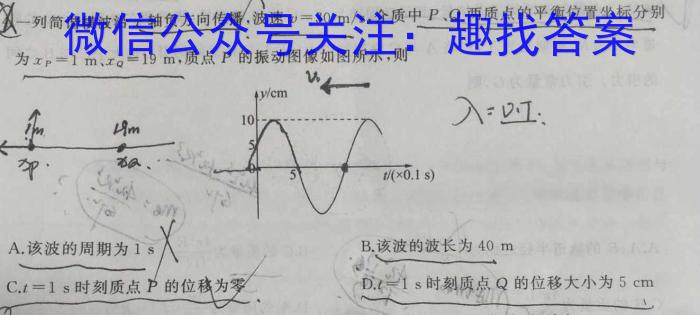 一列简谐
轴负方向传播,波速
介质中P、Q两质点的平衡位置坐标分别
微信公众号关注：趣找答案
为 xP=1 m、xQ=19 m,质点 P 的振动图像如图所示,则
y/cm
λ=υT.
10
1m
19m
5
0
5
t/(×0.1 s)
xp.
xQ.
A.该波的周期为 1 s
B.该波的波长为 40 m
C.t=1 s 时刻质点 P 的位移为零
D.t=1 s 时刻质点 Q 的位移大小为 5 cm